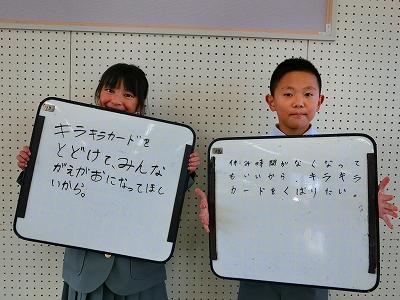 キラキラカードを
とどけて、みんな
がえがおになってほし
いから。
休み時間がなくなって
もいいから キラキラ
カードをくばりたい。